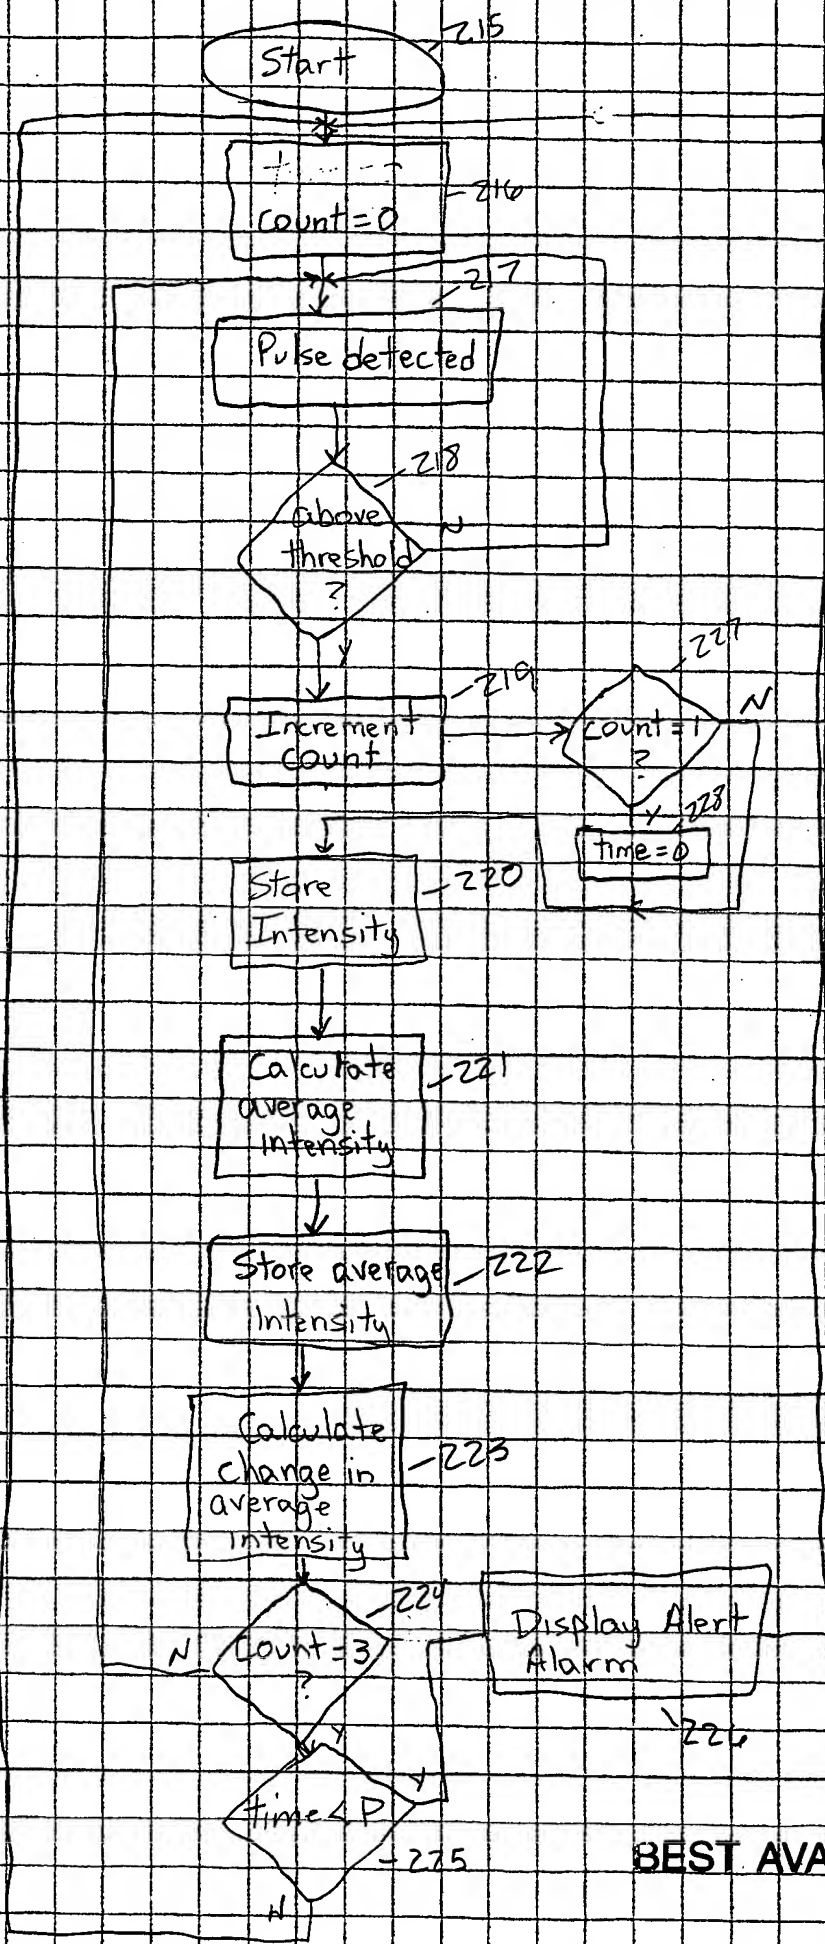 215
Start
216
count = 0
217
Pulse detected
218
above
threshold
?
N
Y
219
Increment
count
227
count = 1
?
N
Y
228
time = 0
220
Store
Intensity
221
Calculate
average
intensity
222
Store average
Intensity
223
Calculate
change in
average
intensity
224
Count = 3
?
N
Y
Display Alert
Alarm
226
time < P
Y
225
N
BEST AVA